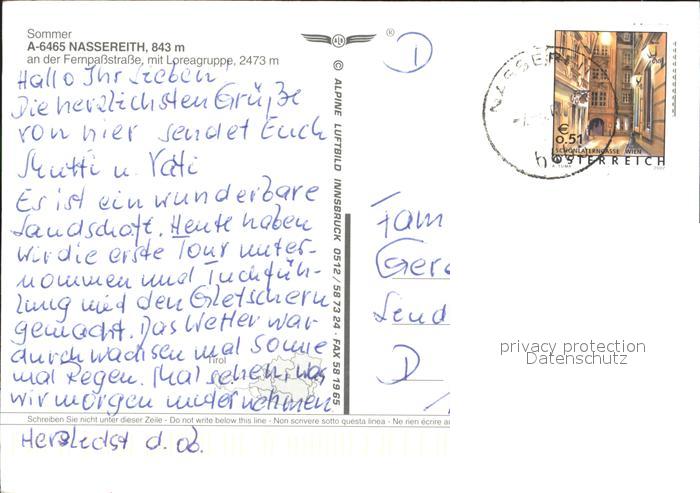 Sommer
A-6465 NASSEREITH, 843 m
an der Fernpaßstraße, mit Loreagruppe, 2473 m
Hallo Ihr Lieben,
Die herzlichsten Grüße
von hier sendet Euch
Mutti u. Vati
Es ist ein wunderbare
Landschaft. Heute haben
wir die erste Tour unter-
nommen und Tuchfüh-
lung mit den Gletschern
gemacht. Das Wetter war
durchwachsen mal Sonne
mal Regen. Mal sehen, was
wir morgen unternehmen.
Tirol
Schreiben Sie nicht unter dieser Zeile - Do not write below this line - Non scrivere sotto questa linea - Ne rien écrire
Herzlichst d. Ob.
ALB
®
© ALPINE LUFTBILD INNSBRUCK 0512/587324 · FAX 581965
D
NASSEREITH
€
0,51
SCHÖNLATERNGASSE WIEN
ÖSTERREICH
Fam
Ger
D
privacy protection
Datenschutz